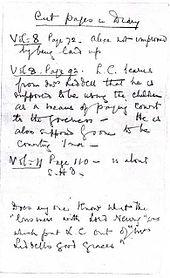 Cut pages in Diary
Vol: 8 Page 72 – Alice not improved
by being laid up
Vol: 8. Page 92. L.C. learns
from Mrs Liddell that he is
supposed to be using the children
as a means of paying court
to the governess – He is
also supposed by some to be
courting Ina –
Vol: 11 Page 110 – is about
Does any one know what the
"business with Lord Newry" was
which put L C out of "Mrs
Liddell's good graces"